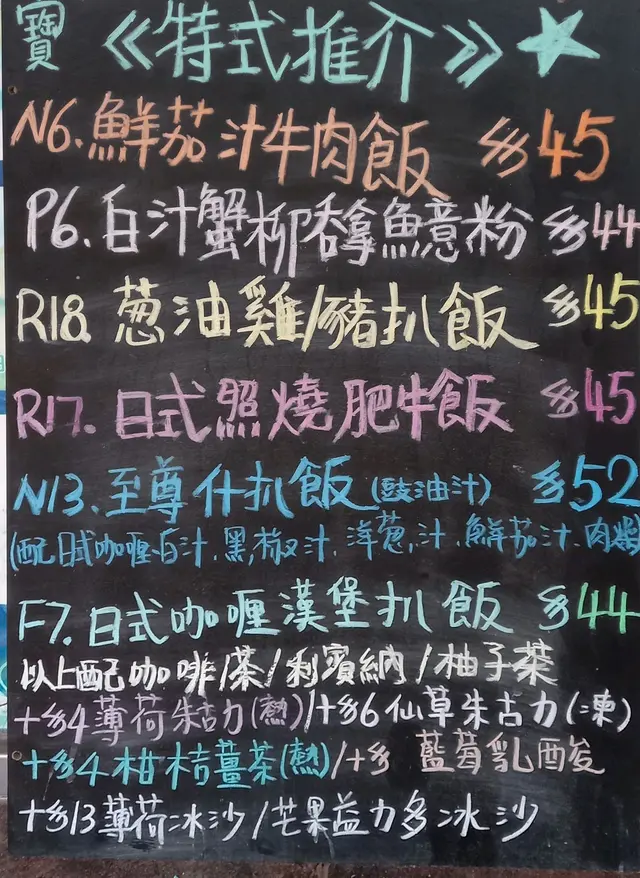 寶 《特式推介》
N6. 鮮茄汁牛肉飯 $45
P6. 白汁蟹柳吞拿魚意粉 $44
R18. 葱油雞/豬扒飯 $45
R17. 日式照燒肥牛飯 $45
N13. 至尊什扒飯(豉油汁) $52
(配日式咖喱.白汁.黑椒汁.洋葱汁.鮮茄汁.肉
F7. 日式咖喱漢堡扒飯 $44
以上配咖啡/茶/利賓納/柚子茶
+$4薄荷朱古力(熱)/+$6仙草朱古力(凍)
+$4柑桔薑茶(熱)/+$ 藍莓乳酸
+$13薄荷冰沙/芒果益力多冰沙